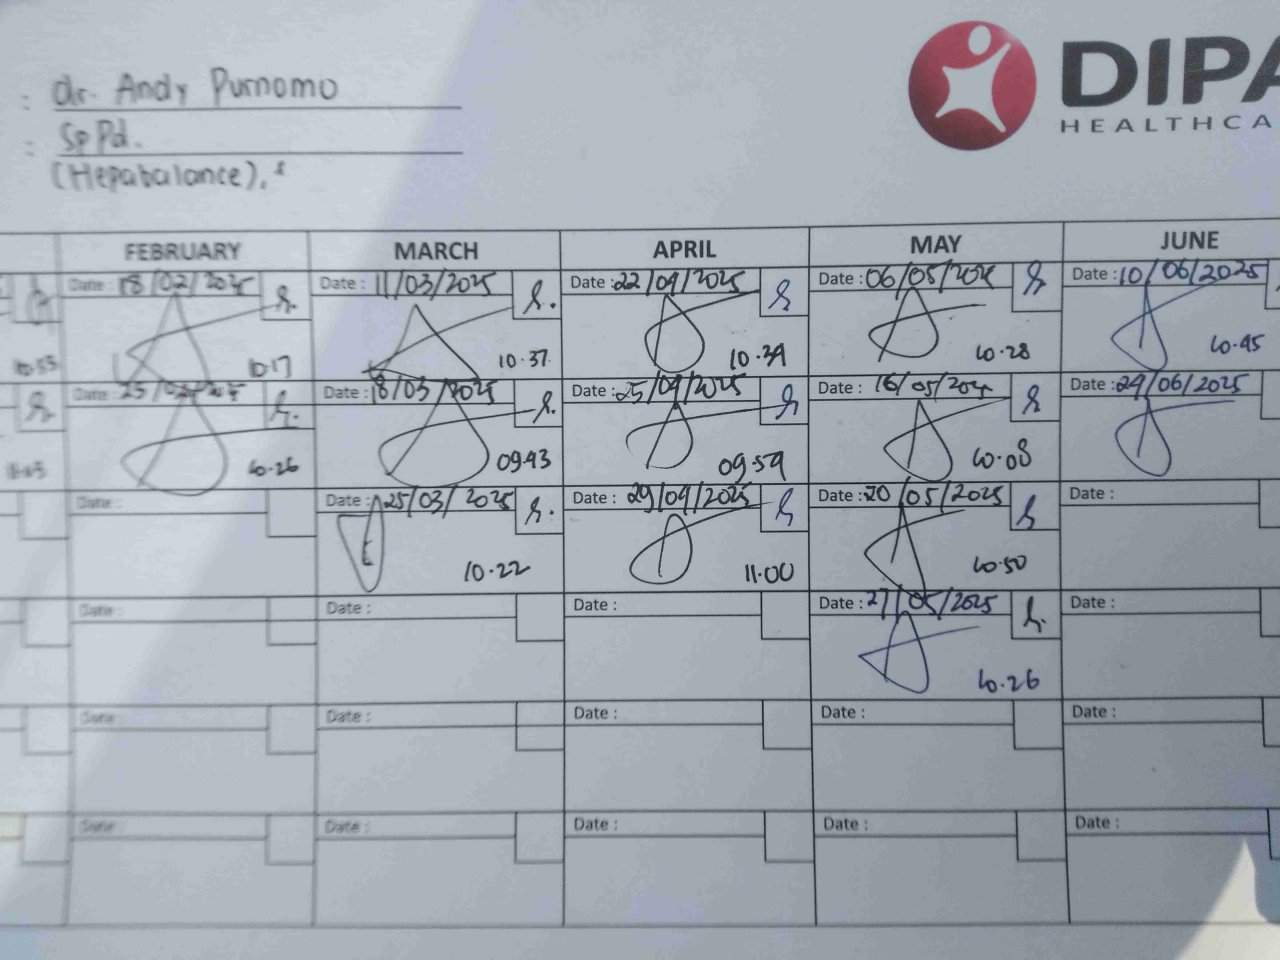 : dr. Andy Purnomo
: SpPd.
(Hepabalance),
DIPA
HEALTHCA
FEBRUARY MARCH APRIL MAY JUNE
Date : 18/02/2025 Date : 11/03/2025 Date : 22/04/2025 Date : 06/05/2025 Date : 10/06/2025
10.53 10.17 10.37 10.34 10.28 10.45
Date : 25/02/2025 Date : 18/03/2025 Date : 25/04/2025 Date : 16/05/2025 Date : 24/06/2025
10.26 09.43 09.54 10.08
Date : Date : 25/03/2025 Date : 29/04/2025 Date : 20/05/2025 Date :
10.22 11.00 10.50
Date : Date : Date : Date : 27/05/2025 Date :
10.26
Date : Date : Date : Date : Date :
Date : Date : Date : Date : Date :